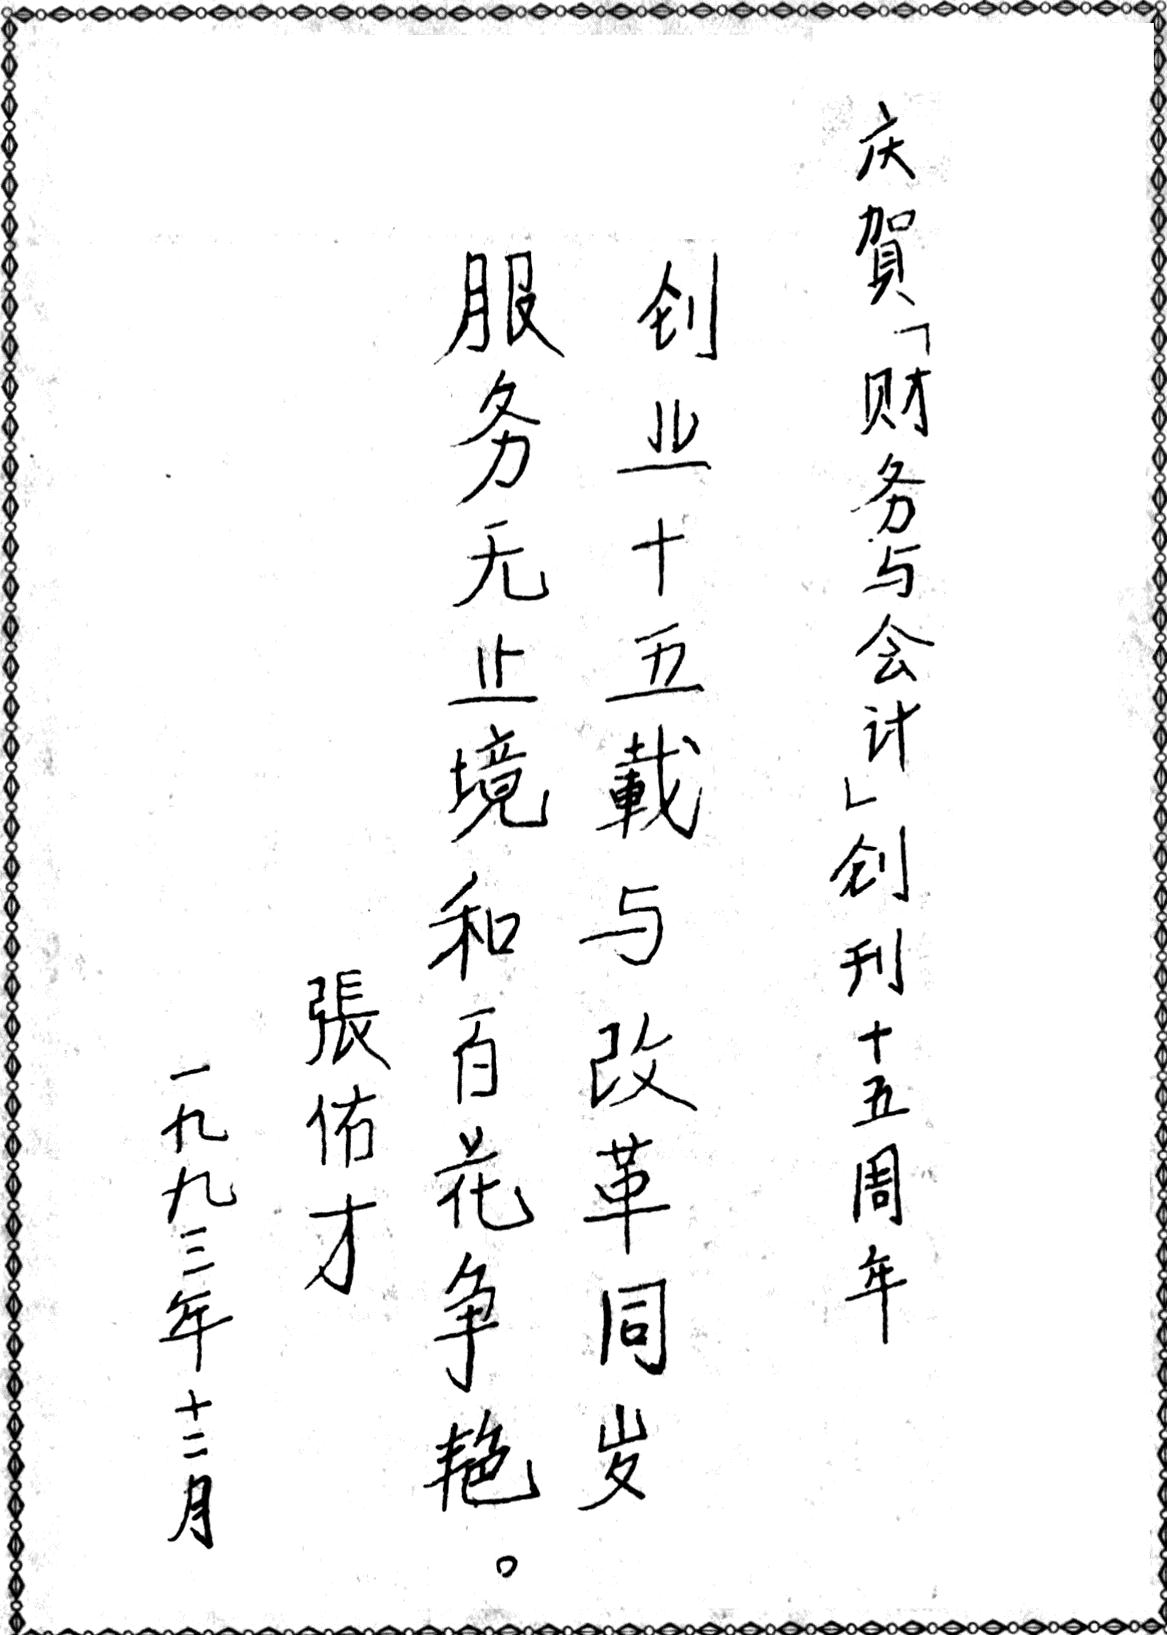 庆賀「财务与会计」创刊十五周年
创业十五載与改革同岁
服务无止境和百花争艳。
張佑才
一九九三年十二月